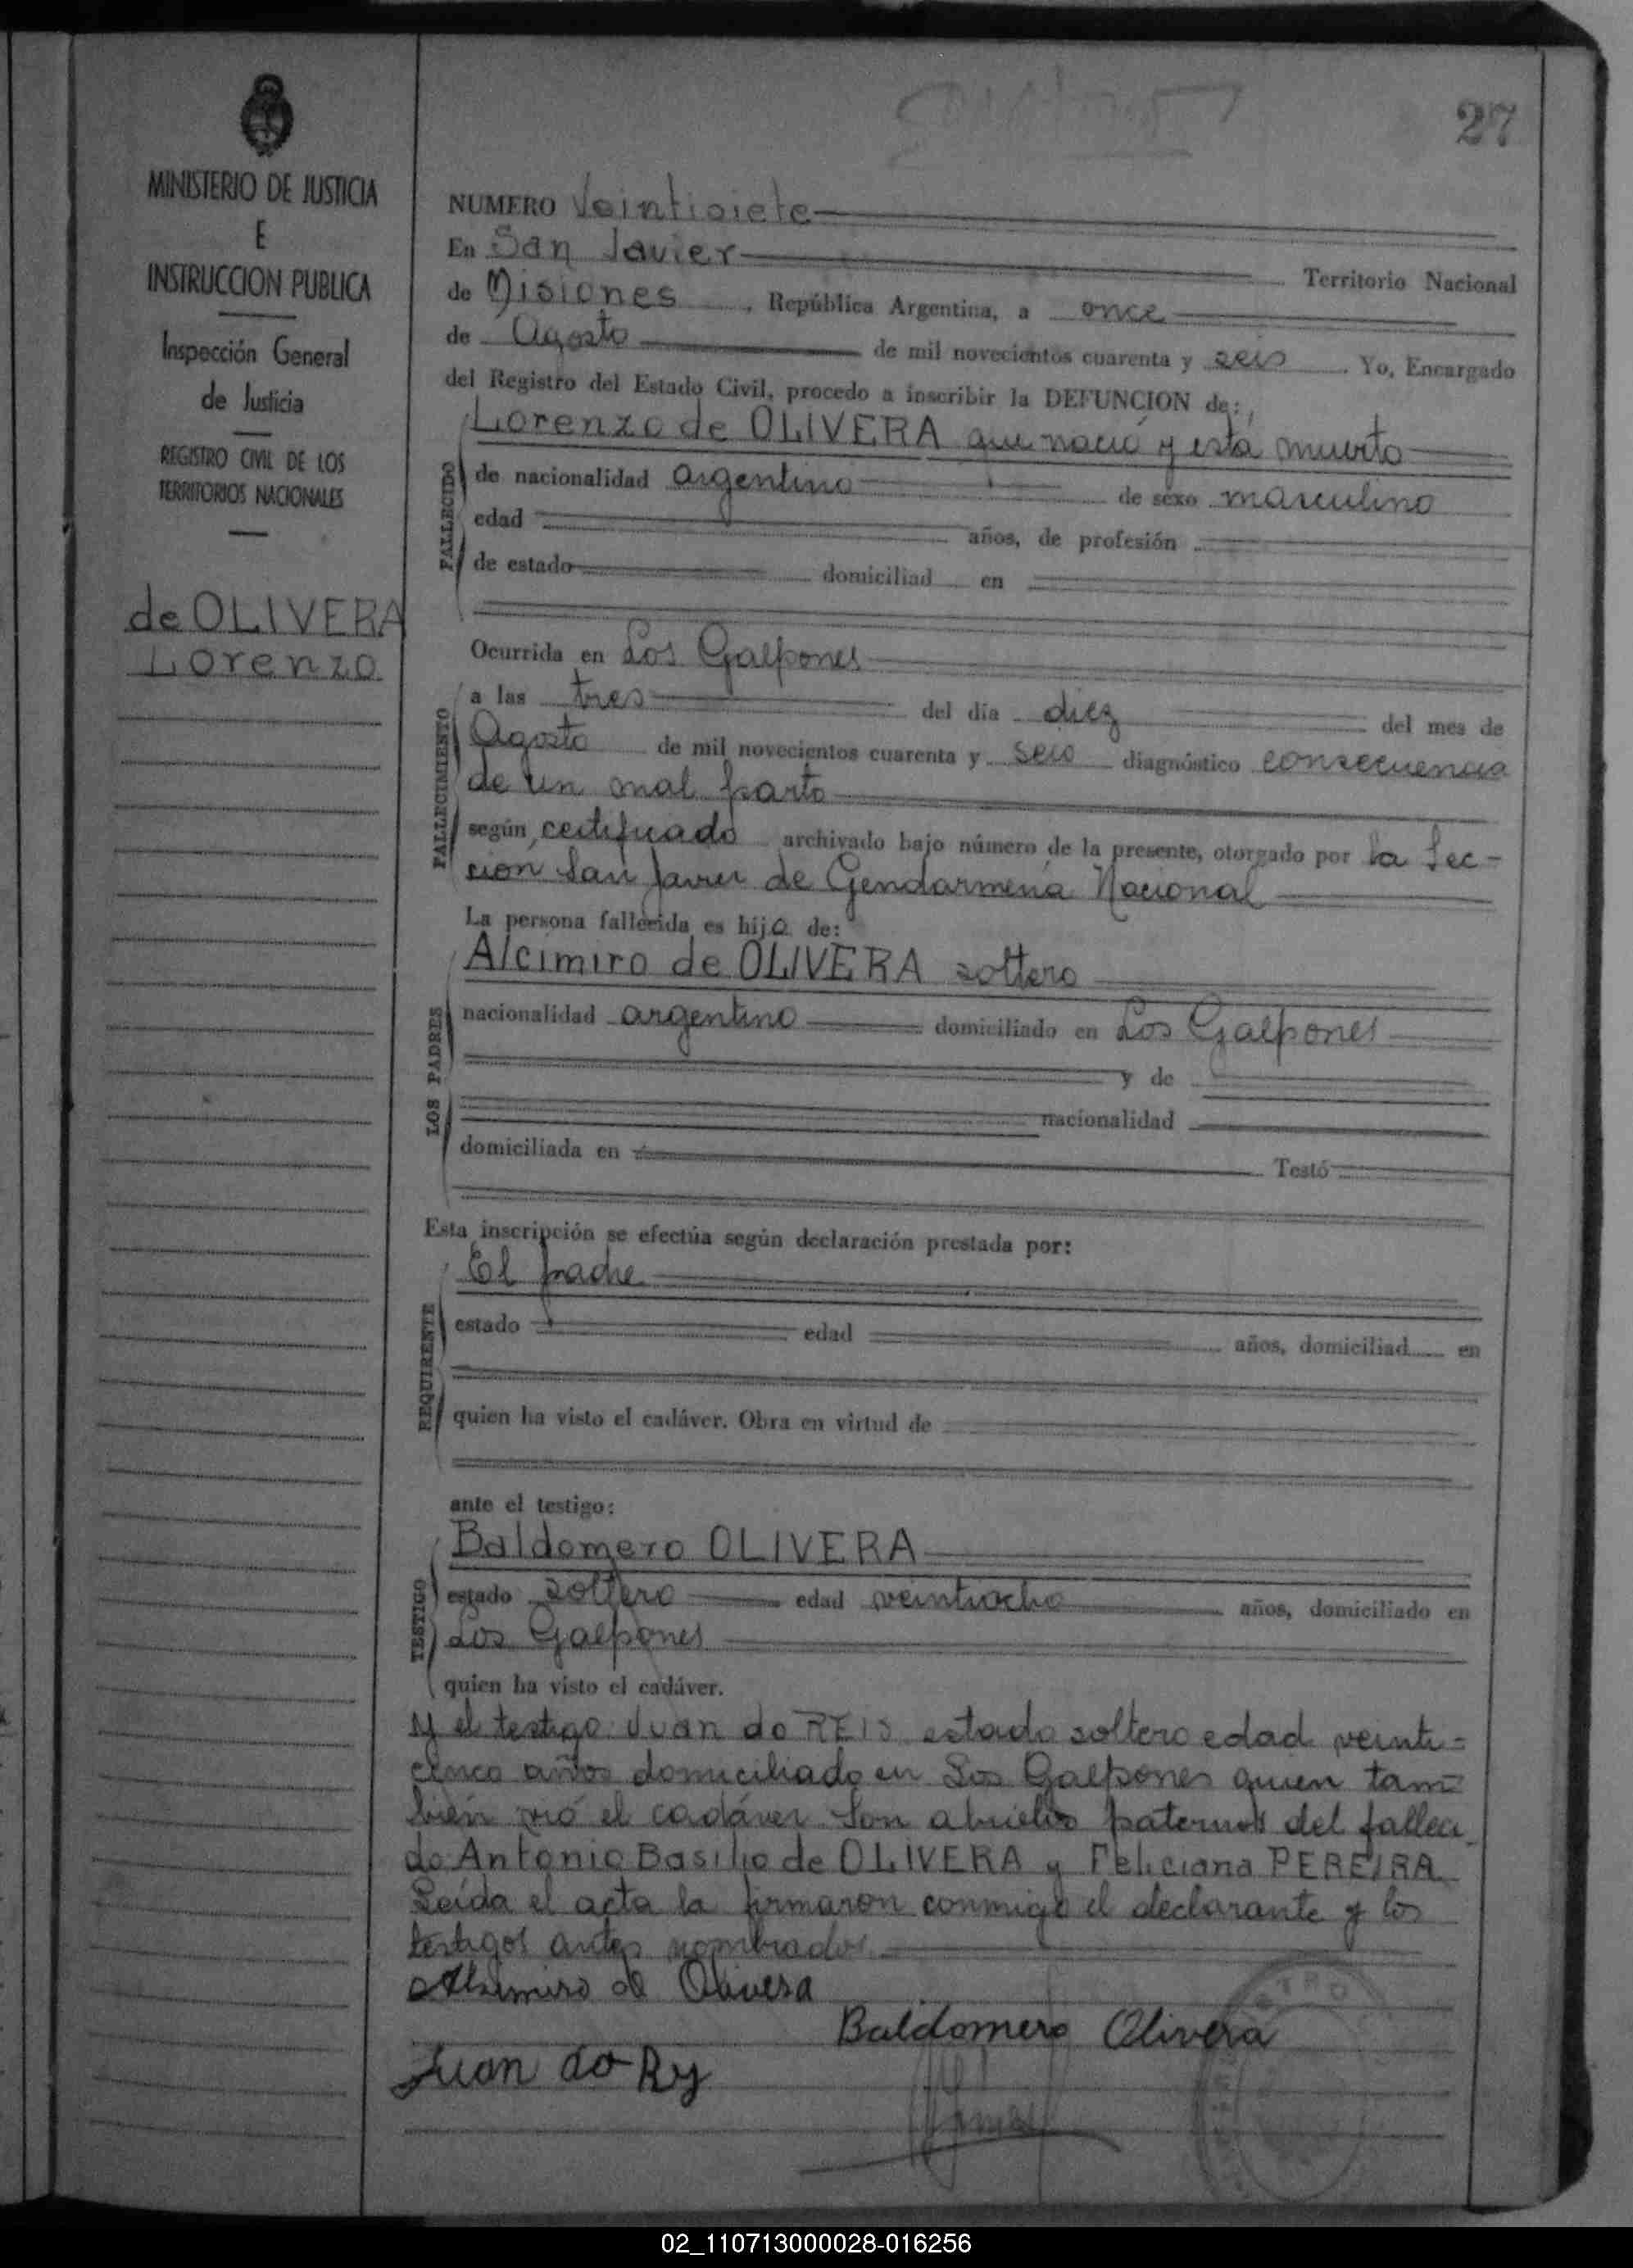 27
MINISTERIO DE JUSTICIA
E
INSTRUCCION PUBLICA
Inspección General
de Justicia
REGISTRO CIVIL DE LOS
TERRITORIOS NACIONALES
de OLIVERA
Lorenzo
NUMERO Veintisiete
En San Javier Territorio Nacional
de Misiones, República Argentina, a once
de Agosto de mil novecientos cuarenta y seis. Yo, Encargado
del Registro del Estado Civil, procedo a inscribir la DEFUNCION de:
Lorenzo de OLIVERA que nació y está muerto
FALLECIDO
de nacionalidad argentino de sexo masculino
edad años, de profesión
de estado domiciliad en
Ocurrida en Los Galpones
FALLECIMIENTO
a las tres del día diez del mes de
Agosto de mil novecientos cuarenta y seis diagnóstico consecuencia
de un mal parto
según certificado archivado bajo número de la presente, otorgado por la Sec-
ción San Javier de Gendarmería Nacional
La persona fallecida es hijo de:
LOS PADRES
Alcimiro de OLIVERA soltero
nacionalidad argentino domiciliado en Los Galpones
y de
nacionalidad
domiciliada en Testó
Esta inscripción se efectúa según declaración prestada por:
REQUIRENTE
El padre
estado edad años, domiciliad en
quien ha visto el cadáver. Obra en virtud de
ante el testigo:
TESTIGO
Baldomero OLIVERA
estado soltero edad veintiocho años, domiciliado en
Los Galpones
quien ha visto el cadáver.
Y el testigo: Juan do REIS estado soltero edad veinti=
cinco años domiciliado en Los Galpones quien tam=
bién vió el cadáver Son abuelos paternos del falleci_
do Antonio Basilio de OLIVERA y Feliciana PEREIRA
Leída el acta la firmaron conmigo el declarante y los
testigos antes nombrados
Alsimiro de Olivera
Baldomero Olivera
Juan do Ry
02_110713000028-016256